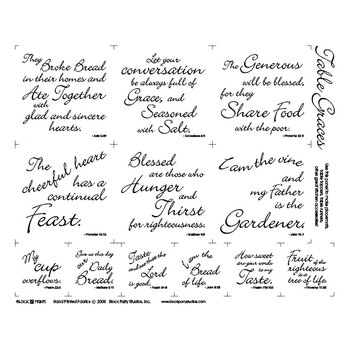 They
Broke Bread
in their homes and
Ate Together
with
glad and sincere
hearts.
- Acts 2:46
Let your
conversation
be always full of
Grace, and
Seasoned
with Salt.
- Colossians 4:6
The Generous
will be blessed,
for they
Share Food
with the poor.
- Proverbs 22:9
Table Graces
The
cheerful heart
has a
continual
Feast.
- Proverbs 15:15
Blessed
are those who
Hunger
and
Thirst
for righteousness.
- Matthew 5:6
I am the vine
and
my Father
is the
Gardener.
- John 15:1
My
cup
overflows.
- Psalm 23:5
Give us this day
our
Daily
Bread.
- Matthew 6:11
Taste
and see that the
Lord
is good.
- Psalm 34:8
I am the
Bread
of life.
- John 6:35
How sweet
are your words
to my
Taste.
- Psalm 119:103
Fruit
of the
righteous
is a
tree of life.
- Proverbs 11:30
Hand Printed Fabrics © 2008 Block Party Studios, Inc. www.blockpartystudios.com